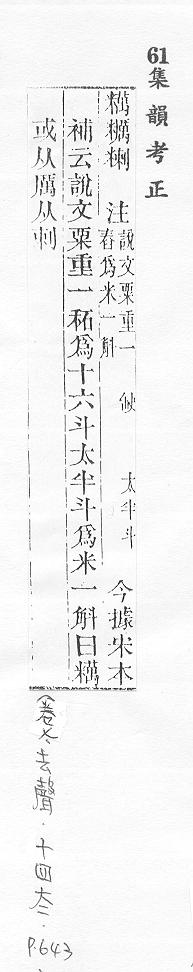 61集韻考正
糲𥽗㮚 注 說文粟重一 舂爲米一斛 缺 太半斗 今據宋本
補云說文粟重一䄷爲十六斗太半斗爲米一斛曰糲
或从厲从𠛱
(卷 去聲．十四 ．P.643